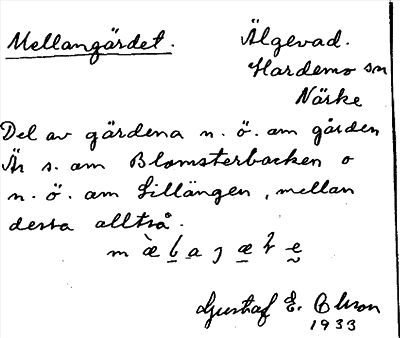 Mellangärdet.
Älgevad.
Hardemo sn
Närke
Del av gärdena n. ö. om gården
Är s. om Blomsterbacken o
n. ö. om Lillängen, mellan
dessa alltså.
Gustaf E. Olsson
1933